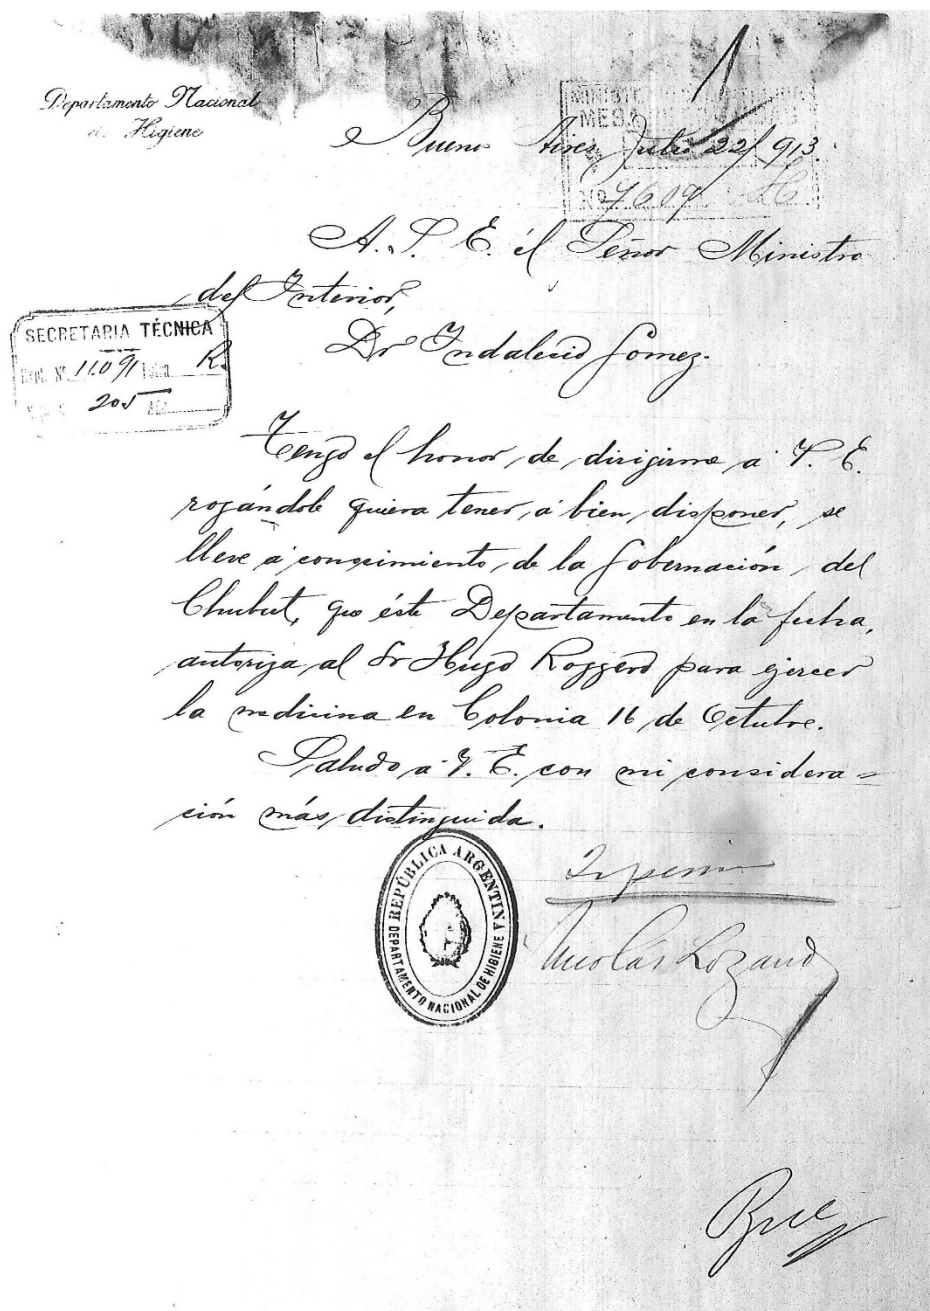 1
Departamento Nacional
de Higiene
MINISTERIO
MESA
Buenos Aires, Julio 22/913.
Nº 7609
A. S. E. el Señor Ministro
del Interior,
SECRETARIA TÉCNICA
Expt. Nº 11091 Letra R.
205
Dr Indalecio Gomez.
Tengo el honor de dirigirme á V. E.
rogándole quiera tener á bien disponer, se
lleve á conocimiento de la Gobernación del
Chubut, que éste Departamento en la fecha,
autoriza al Sr Hugo Roggero para ejercer
la medicina en Colonia 16 de Octubre.
Saludo á V. E. con mi considera=
ción más distinguida.
REPÚBLICA ARGENTINA
DEPARTAMENTO NACIONAL DE HIGIENE
Nicolás Lozano